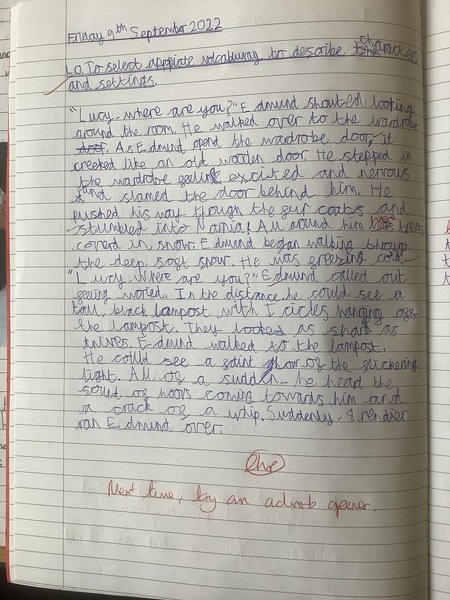 Friday 9th September 2022
L.O. To select appropiate vocabulary to describe characters
and settings.
"Lucy where are you?" Edmund shouted looking
around the room. He walked over to the wardrobe
door. As Edmund, opend the wardrobe door, it
creeked like an old wooden door. He stepped in
the wardrobe geeling excited and nervous
and slamed the door behind him. He
pushed his way though the gur coats and
stumbled into Narnia! All around him was trees
coverd in snow. Edmund began walking through
the deep, sogt snow. He was greezing cold.
"Lucy, Where are you?" Edmund called out
geeling woried. In the distance, he could see a
tall, black lampost with I cicles hanging oge
the lampost. They looked as sharp as
knives. Edmund walked to the lampost.
He could see a gaint glow og the glickering
light. All og a sudden he head the
soud og hoovs coming towards him and
a crack og a whip. Suddenly, 8 rendier
ran Edmund over.
Next time, try an adverb opener.